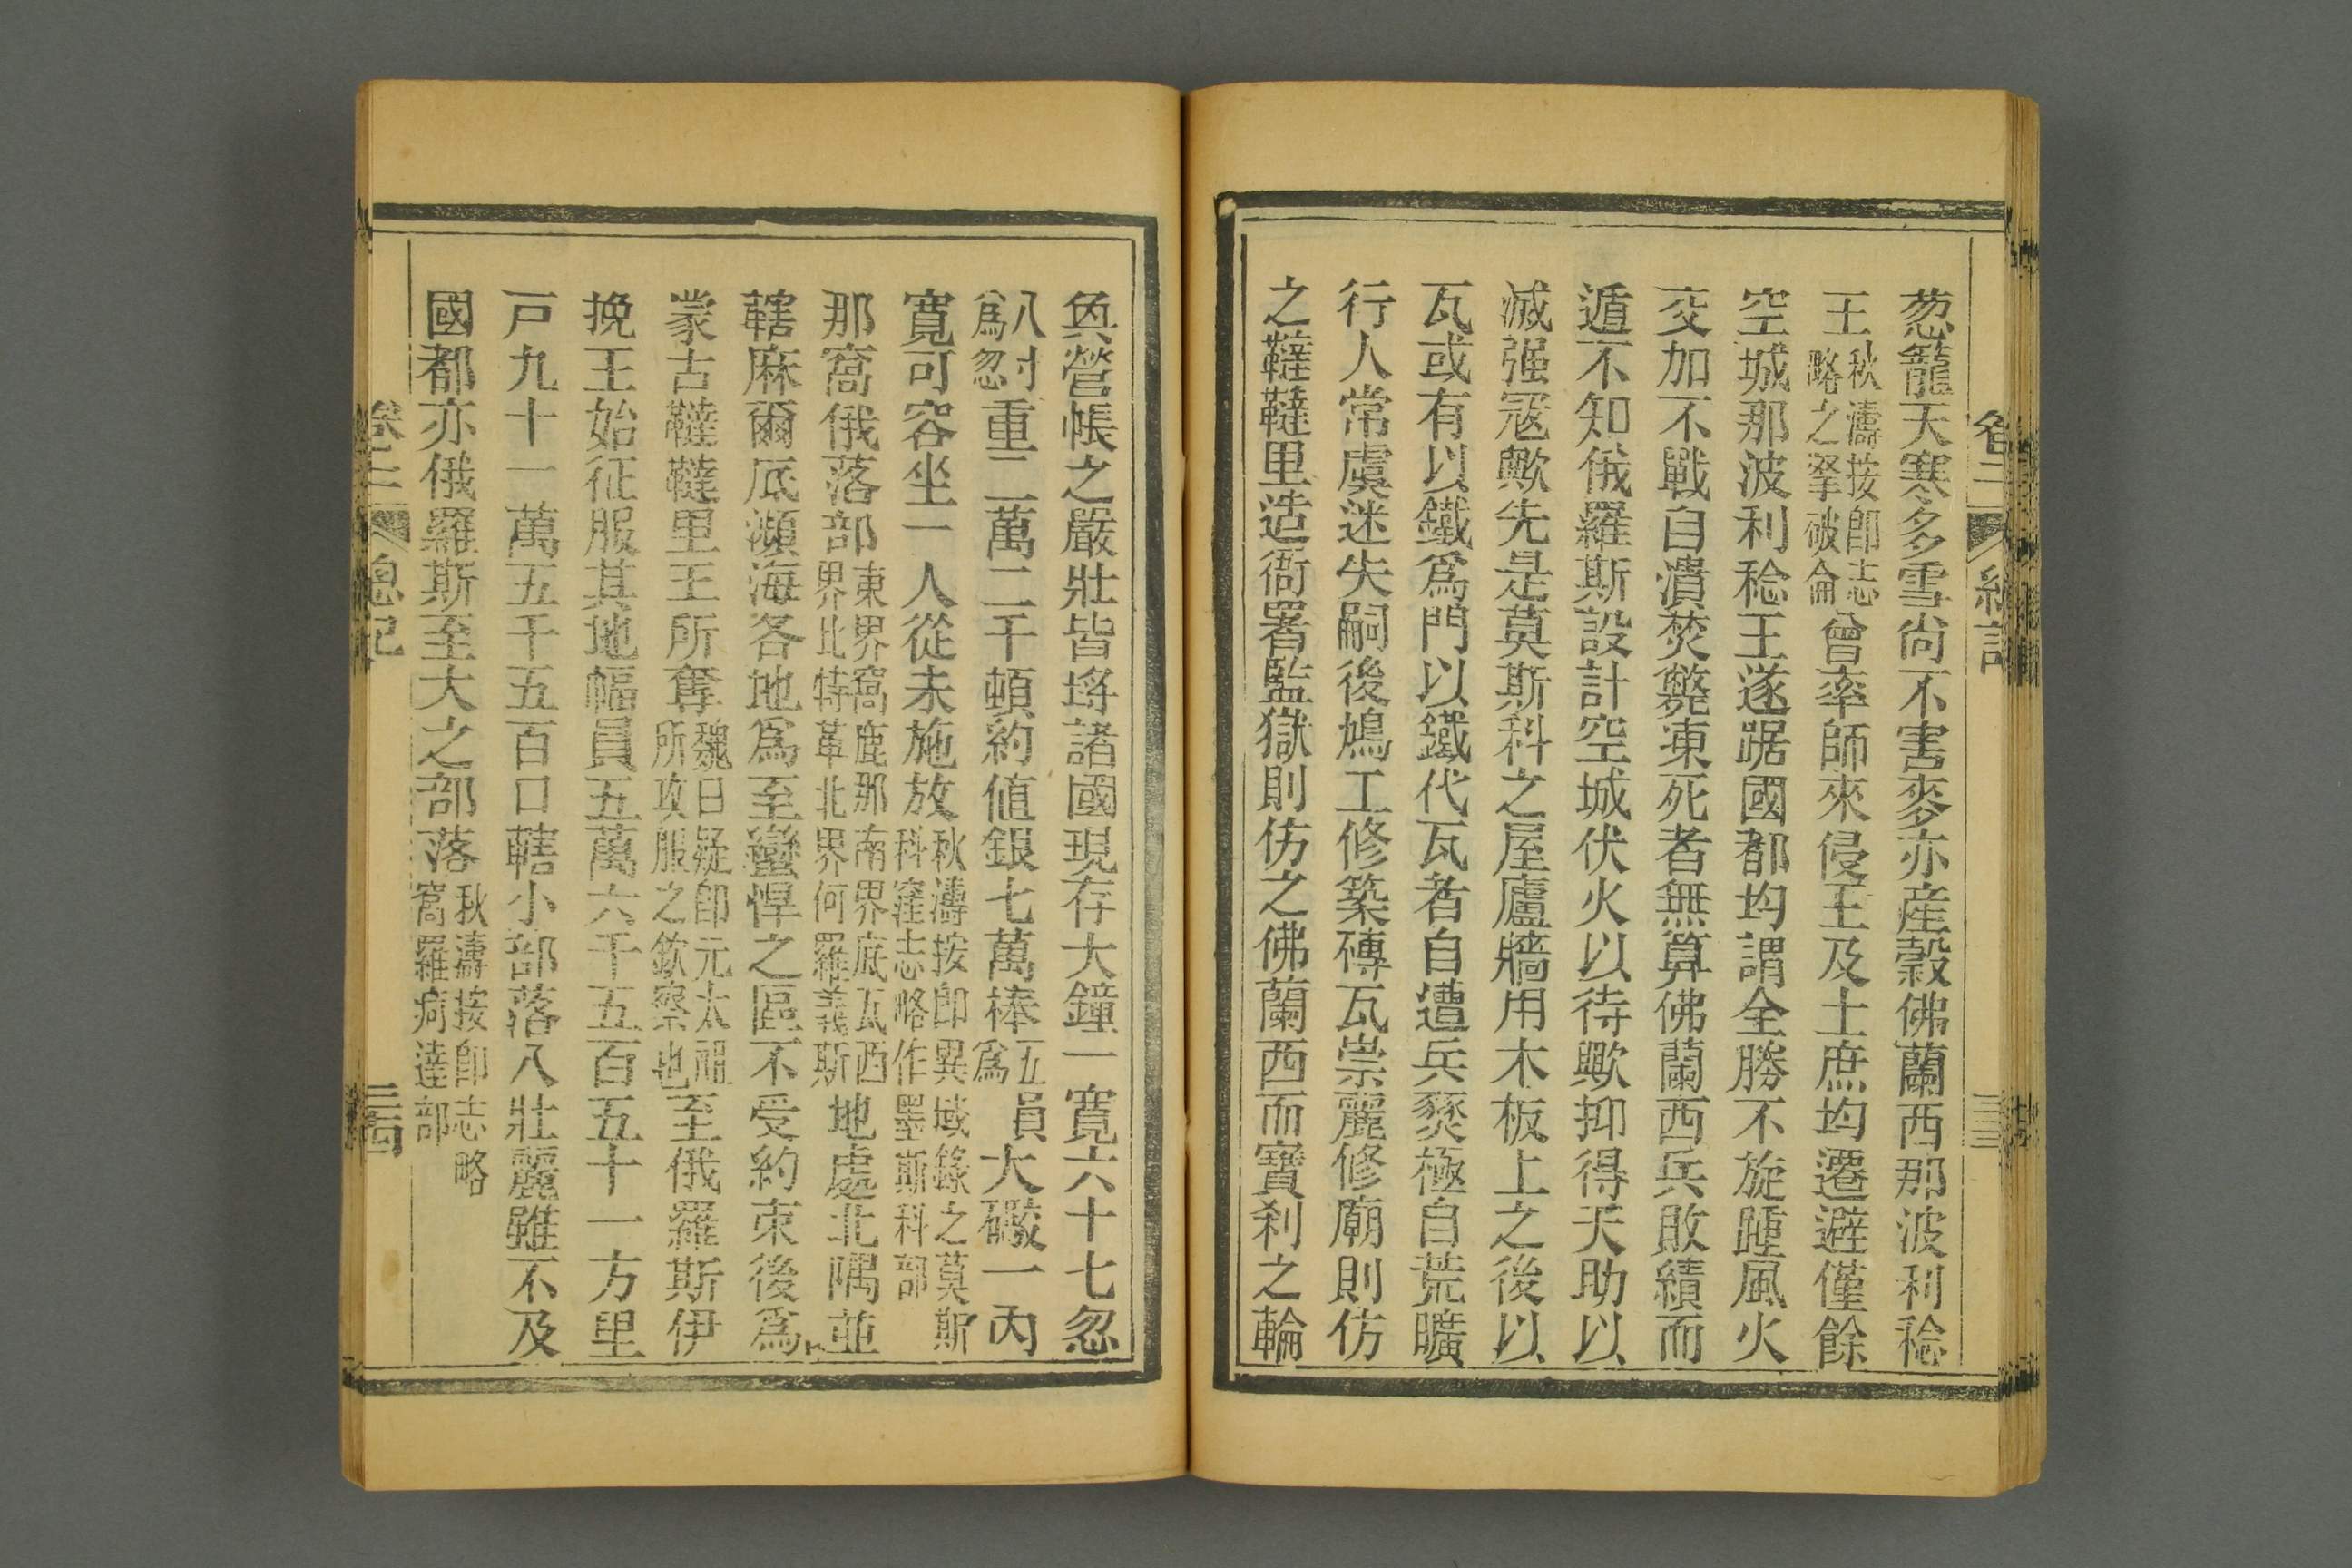 葱籠天寒多雪尚不害麥亦産穀佛蘭西那波利稔
王秋濤按卽志略之拏破侖曾率師來侵王及士庶均遷避僅餘
空城那波利稔王遂踞國都均謂全勝不旋踵風火
交加不戰自潰焚斃凍死者無算佛蘭西兵敗績而
遁不知俄羅斯設計空城伏火以待歟抑得天助以
滅强寇歟先是莫斯科之屋廬牆用木板上之後以
瓦或有以鐵爲門以鐵代瓦者自遭兵燹極自荒曠
行人常虞迷失嗣後鳩工修築磚瓦崇麗修廟則仿
之韃韃里造衙署監獄則仿之佛蘭西而寶刹之輪
奐營帳之嚴壯皆埒諸國現存大鐘一寬六十七忽
八尌爲忽重二萬二千頓約値銀七萬棒五員爲大礮一內
寬可容坐一人從未施放秋濤按卽異域錄之莫斯科窪志略作墨斯科部
那窩俄落部東界窩鹿那南界底瓦西界北特革北界何羅義斯地處北隅並
轄麻爾底瀕海各地爲至蠻悍之區不受約束後爲
蒙古韃韃里王所奪魏曰疑卽元太祖所攻服之欽察也至俄羅斯伊
挽王始征服其地幅員五萬六千五百五十一方里
戸九十一萬五千五百口轄小部落八壯麗雖不及
國都亦俄羅斯至大之部落秋濤按卽志略窩羅疴達部
卷二 總記 三四